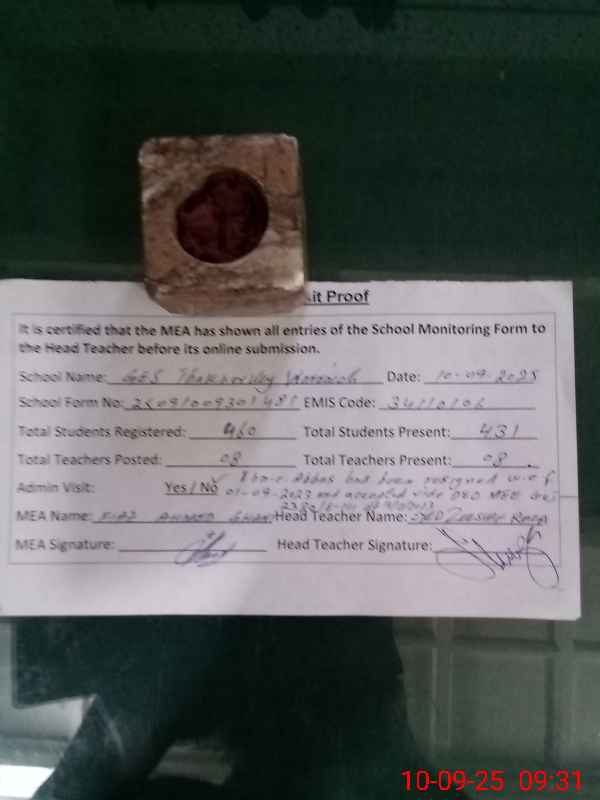 it Proof
It is certified that the MEA has shown all entries of the School Monitoring Form to
the Head Teacher before its online submission.
School Name: GES Date: 10-09-2025
School Form No: EMIS Code:
Total Students Registered: 460 Total Students Present: 431
Total Teachers Posted: 08 Total Teachers Present: 08
Abbas had been resigned w.e.f
Admin Visit: Yes / No 01-09-2023 and accepted vide DEO MEE
MEA Name: AHMED Head Teacher Name:
MEA Signature: Head Teacher Signature:
10-09-25 09:31